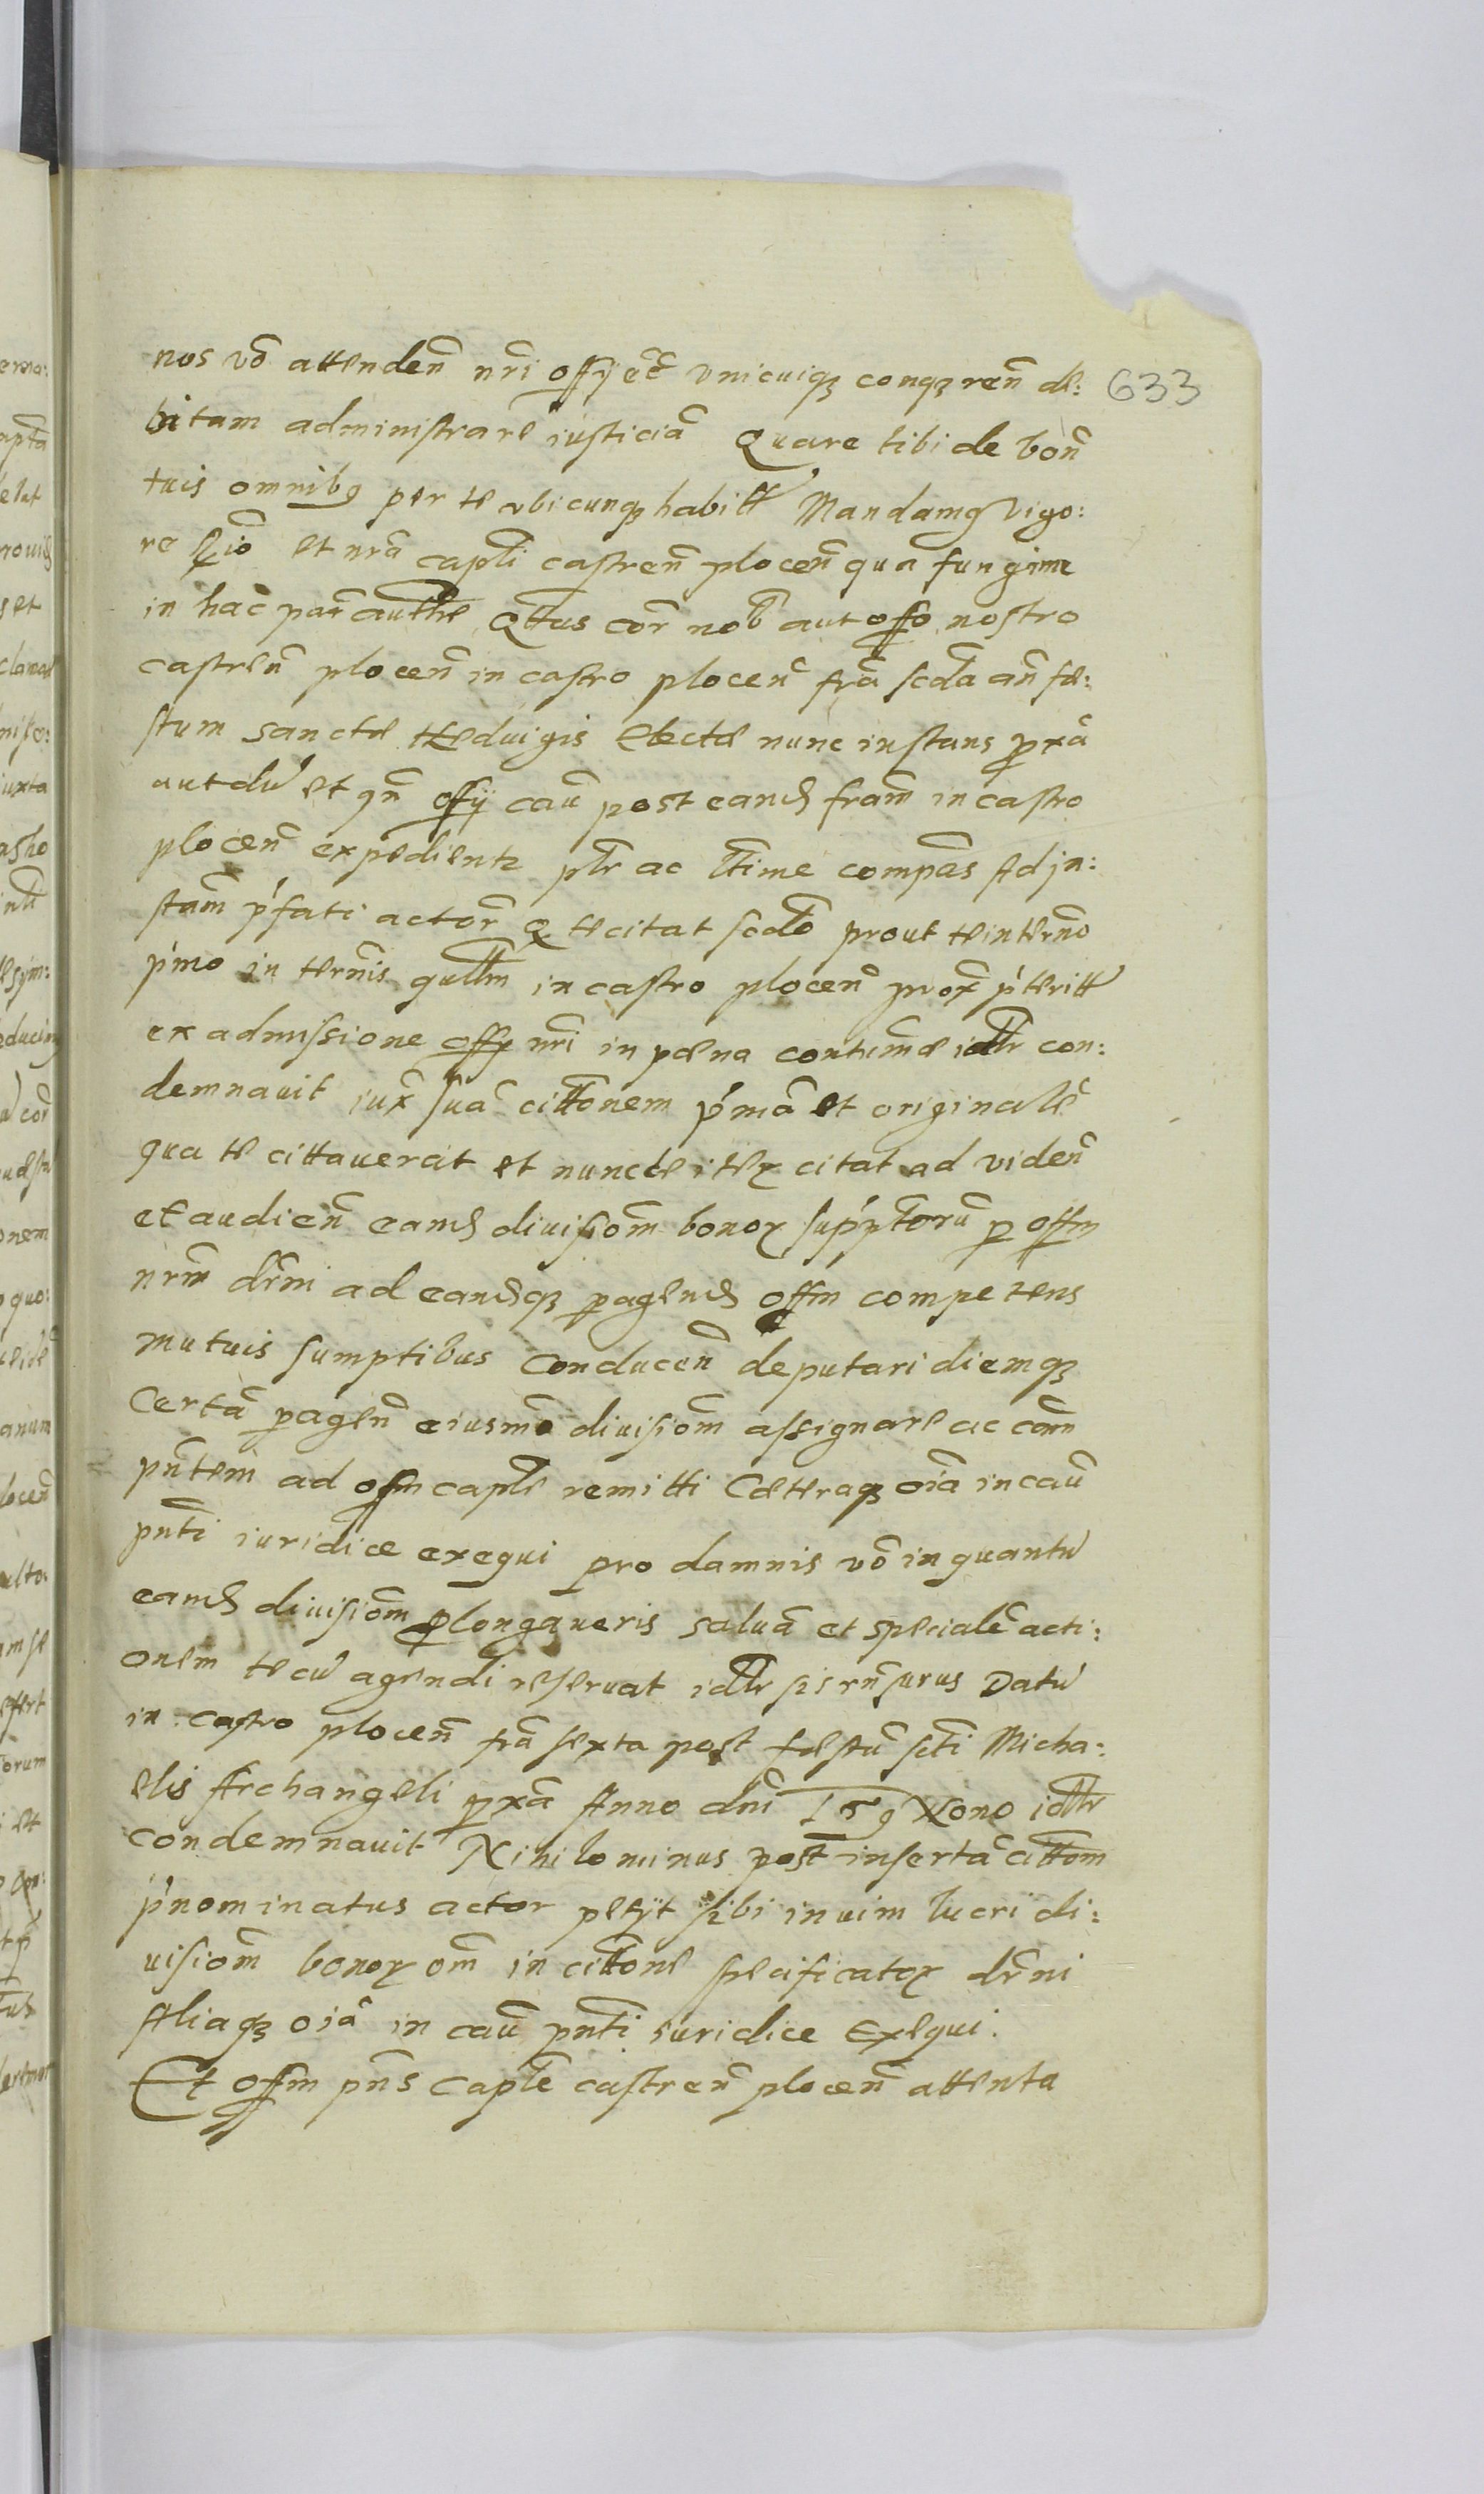 633
nos vō attendeñ nr̄i offÿ ē vnicuiqꝫ conqꝫreñ de:
bitam administrare iusticiā Quare tibi de boñ
tuis omnibꝯ per te vbicunqꝫ habitt Mandamꝯ vigo:
re et nrā capłi castreñ ploceñ qua fungimr
in hac par̄ authe Q̄tus cor̄ nob̄ aut offo nostro
castreñ ploceñ in castro ploceñ fr̄a scda an̄ fe:
stum sanctæ Heduigis Electæ nunc instans ꝓxā
aut dū et qn̄ offÿ cau̅ post eand fram̅ in castro
ploceñ expedientꝫ pl̄r ac l̄time compeas Ad jn:
stam̅ p'fati actor̄ Q te citat scdo prout te in termō
p'mo in termīs qullm in castro ploceñ prox̄ p'teritt
ex admissione offÿ nr̄i in pæna contumæ idłr con:
demnauit iux̄ suā cittonem p'mā et originalē
qua te cittauerat et nunc te iteꝝ citat ad videñ
et audieñ eand diuisiom̅ bonoꝝ supp̄torū ꝑ offm
nrm̅ dr̄ni ad eandqꝫ ꝑagend offm competens
mutuis sumptibus Conduceñ deputari diemqꝫ
Certā ꝑageñ eiusmo diuisiom̅ assignare ac cām
pn̄tem ad offm capłe remitti Cæteraqꝫ oīa in cau̅
pn̄ti iuridice exequi pro damnis vō in quantū
eand diuisiom̅ ꝓlongaueris saluā et specialē acti:
onem te cū agendi reseruat idłr sis rn̄surus Datū
in castro ploceñ fr̄a sexta post festū scti Micha:
elis Archangeli ꝓxā Anno dn̄i 159 Nono idłr
condemnauit Nihilominus post insertā cittom̅
p'nominatus actor petÿt sibi in vim lucri di:
uisiom̅ bonoꝝ om̅ in cittone specificatoꝝ dr̄ni
Aliaqꝫ oīa in cau̅ pn̄ti iuridice Exequi.
Et offm pn̄s Capłe castreñ ploceñ attenta